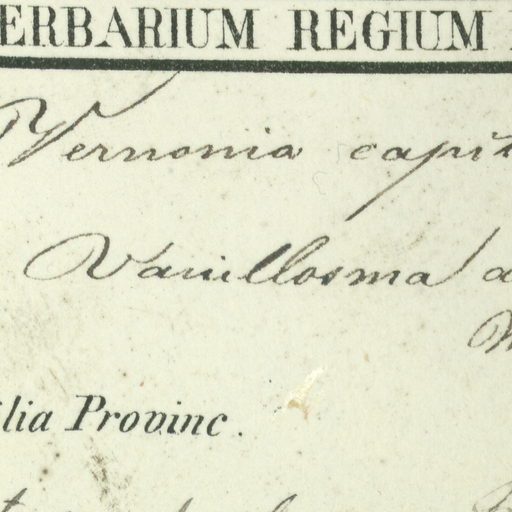 ERBARIUM REGIUM
Vernonia capit
Vanillosma a
lia Provinc.